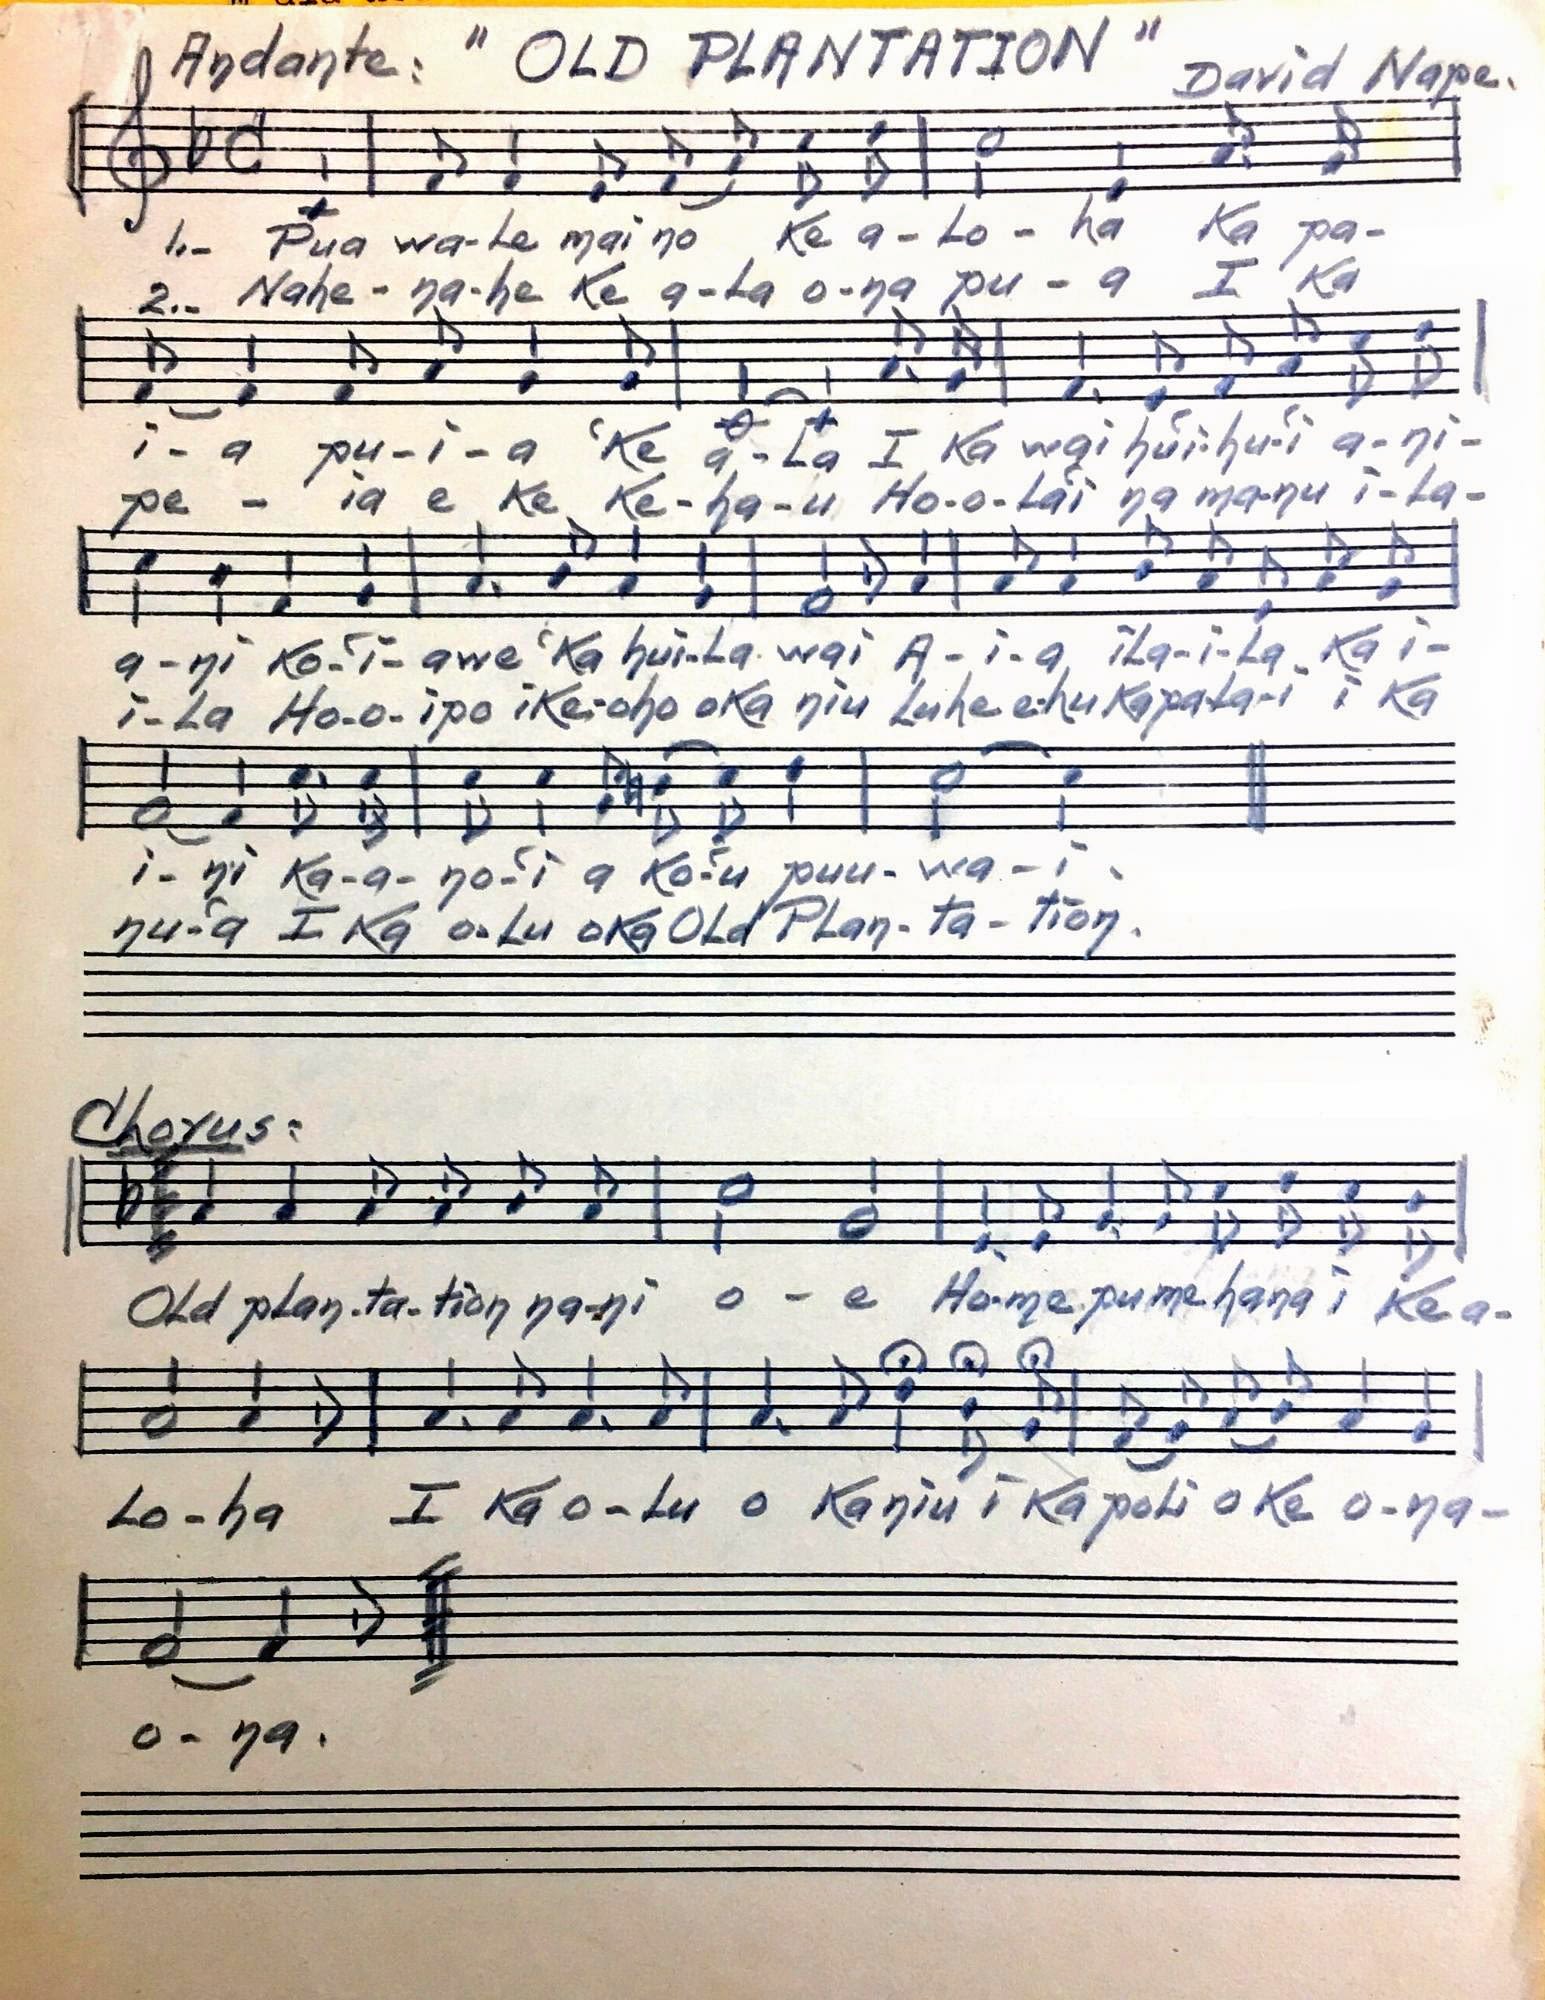 Andante: "OLD PLANTATION" David Nape.
1.- Pua wa-le mai no Ke a-lo-ha Ka pa-
2.- Nahe-na-he Ke a-la o-na pu-a I Ka
i-a pu-i-a 'Ke a-la I Ka wai hu'i-hu-'i a-ni-
pe-ia e Ke Ke-ha-u Ho-o-la'i na ma-nu i-la-
a-ni Ko-'i-awe 'Ka hui-la wai A-i-a ila-i-la Ka i-
i-la Ho-o-ipo iKe-oho oKa niu luhe e-hu Ka pa-la-i i Ka
i-ni Ka-a-no-'i a Ko-'u puu-wa-i.
nu-'a I Ka o-lu oKa Old Plan-ta-tion.
Chorus:
Old plan-ta-tion na-ni o-e Ho-me pumehana i Ke a-
lo-ha I Ka o-lu o Ka niu i Ka poli o Ke o-na-
o-na.